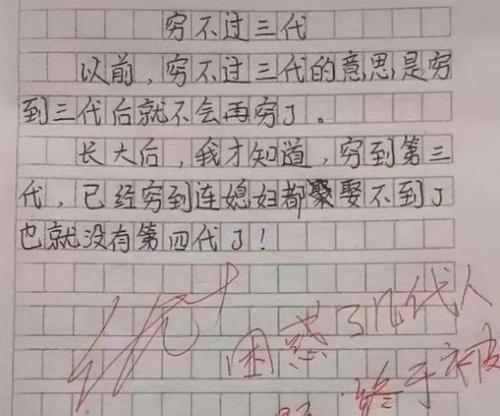 穷不过三代
以前，穷不过三代的意思是穷
到三代后就不会再穷了。
长大后，我才知道，穷到第三
代，已经穷到连媳妇都娶不到了
也就没有第四代了！
优+
困惑了几代人
终于被